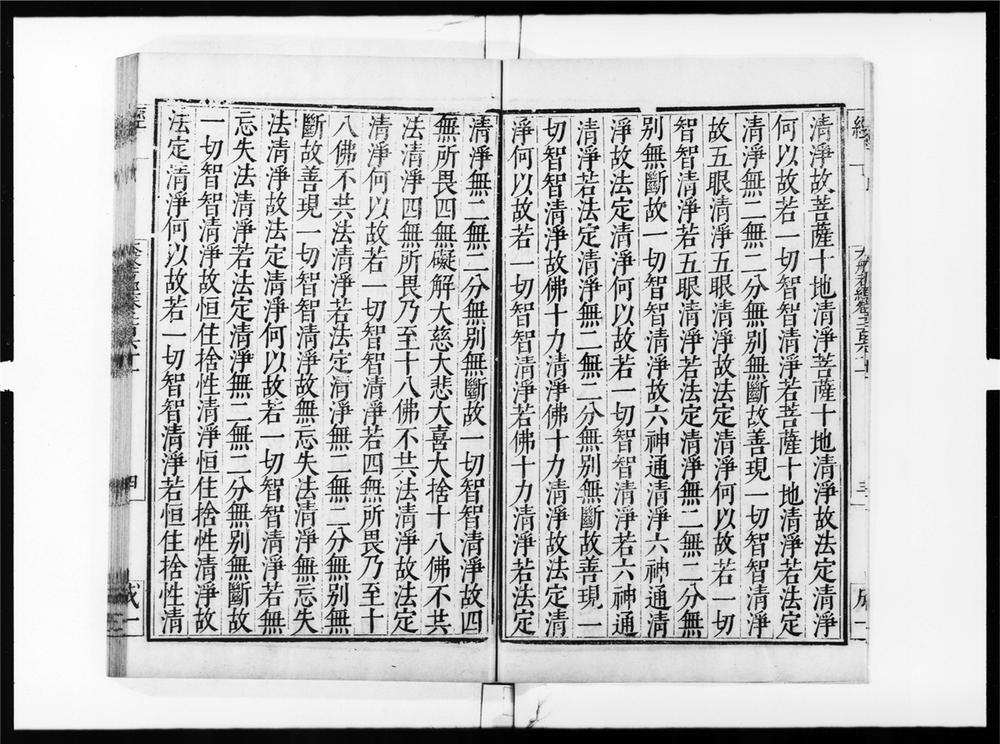 經
三
清淨故菩薩十地清淨菩薩十地清淨故法定清淨
何以故若一切智智清淨若菩薩十地清淨若法定
清淨無二無二分無別無斷故善現一切智智清淨
故五眼清淨五眼清淨故法定清淨何以故若一切
智智清淨若五眼清淨若法定清淨無二無二分無
別無斷故一切智智清淨故六神通清淨六神通清
淨故法定清淨何以故若一切智智清淨若六神通
清淨若法定清淨無二無二分無別無斷故善現一
切智智清淨故佛十力清淨佛十力清淨故法定清
淨何以故若一切智智清淨若佛十力清淨若法定
清淨無二無二分無別無斷故一切智智清淨故四
無所畏四無礙解大慈大悲大喜大捨十八佛不共
法清淨四無所畏乃至十八佛不共法清淨故法定
清淨何以故若一切智智清淨若四無所畏乃至十
八佛不共法清淨若法定清淨無二無二分無別無
斷故善現一切智智清淨故無忘失法清淨無忘失
法清淨故法定清淨何以故若一切智智清淨若無
忘失法清淨若法定清淨無二無二分無別無斷故
一切智智清淨故恒住捨性清淨恒住捨性清淨故
法定清淨何以故若一切智智清淨若恒住捨性清
四